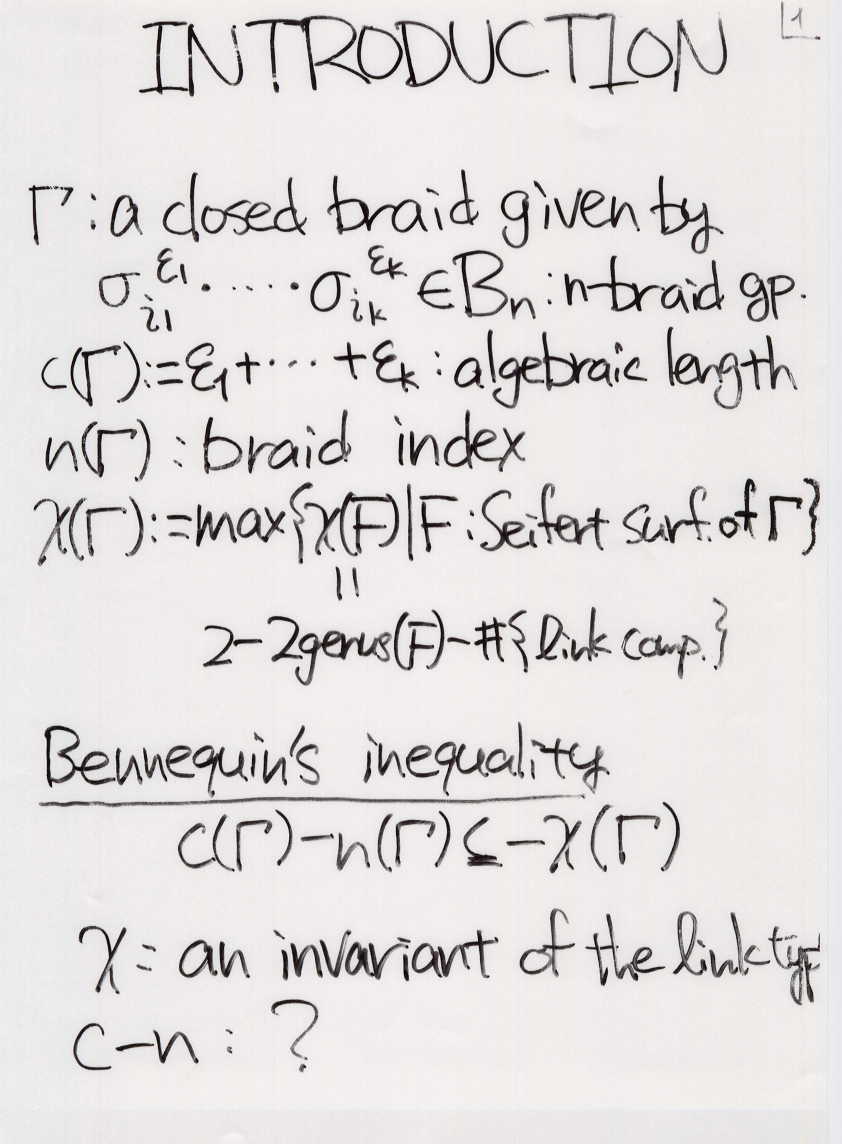 1
INTRODUCTION
Γ : a closed braid given by
σ_{i1}^{ε1} ⋯⋯ σ_{ik}^{εk} ∈ Bn : n-braid gp.
c(Γ) := ε1 + ⋯ + εk : algebraic length
n(Γ) : braid index
χ(Γ) := max{χ(F) | F : Seifert surf. of Γ}
||
2 - 2genus(F) - #{link comp.}
Bennequin's inequality
c(Γ) - n(Γ) ≤ -χ(Γ)
χ = an invariant of the link typ
c - n : ?